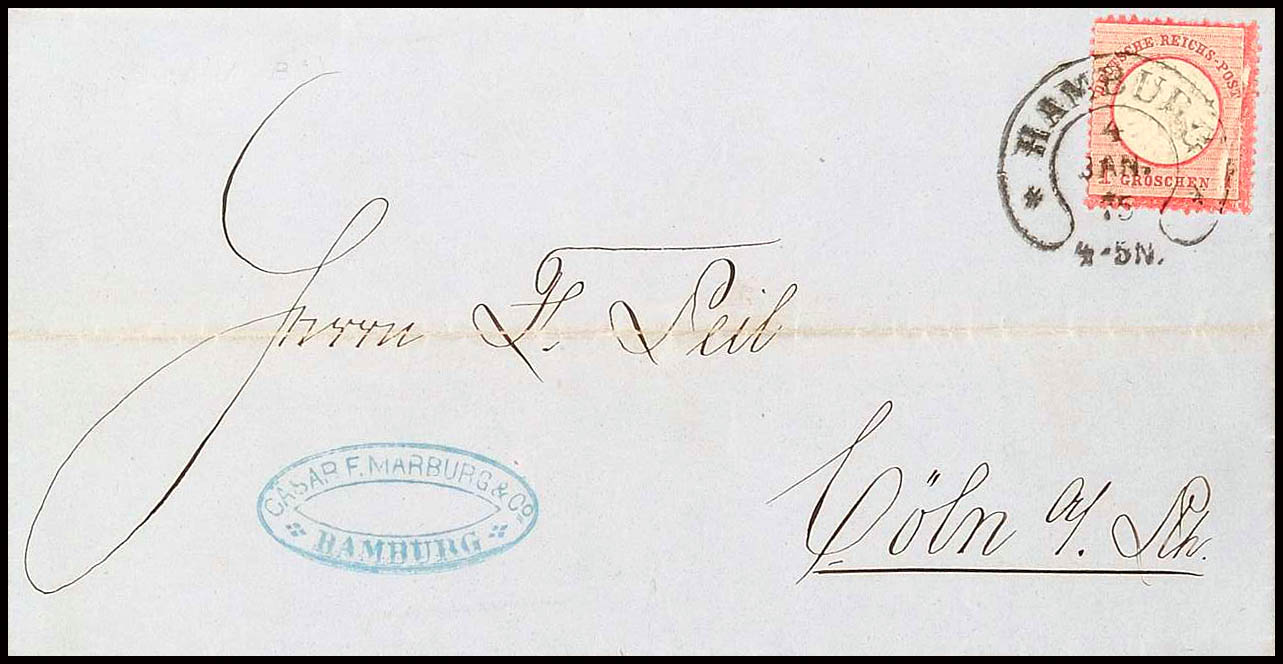 DEUTSCHE REICHS-POST
1 GROSCHEN
* HAMBURG *
4
JAN.
75
4-5N.
Herrn F. Peil
CÄSAR F. MARBURG & Co
HAMBURG
Cöln a/. Rh.